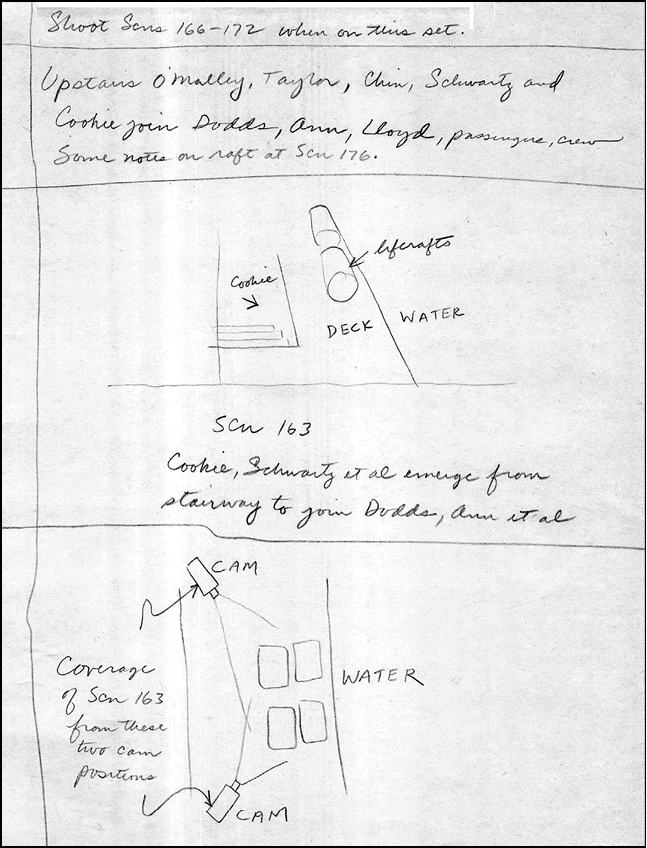 Shoot Scns 166-172 when on this set.
Upstairs O'Malley, Taylor, Chin, Schwartz and
Cookie join Dodds, Ann, Lloyd, passengers, crew
Some notes on raft at Scn 176.
liferafts
Cookie
DECK WATER
SCN 163
Cookie, Schwartz et al emerge from
stairway to join Dodds, Ann et al
CAM
Coverage
of Scn 163
from these
two cam
positions
WATER
CAM